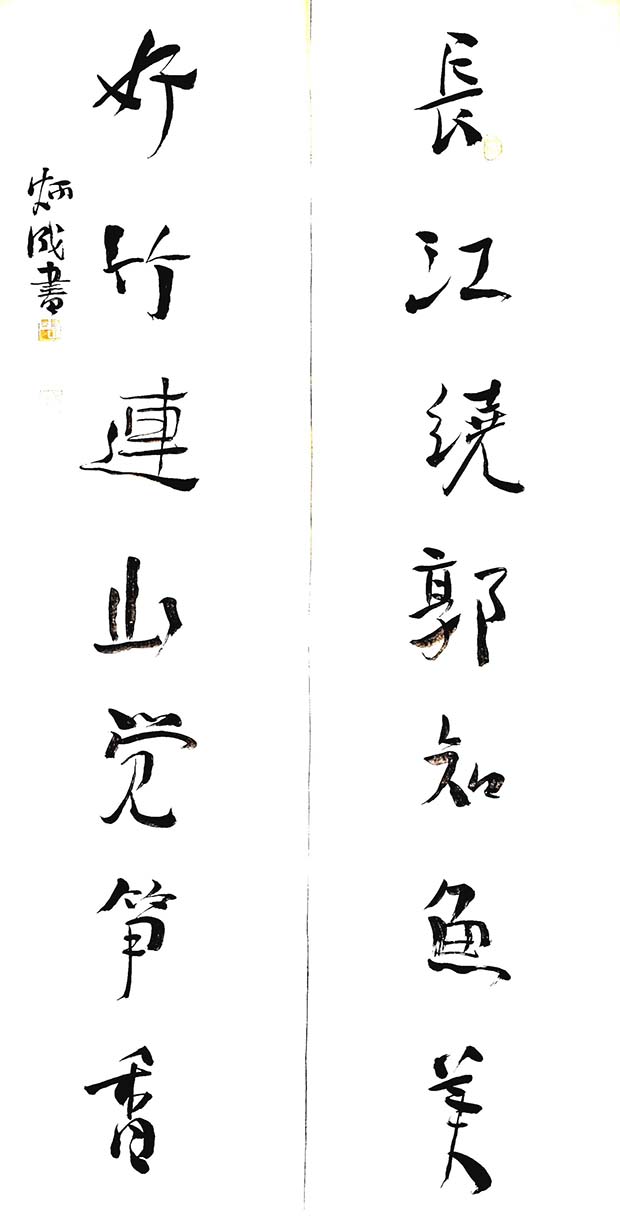 長江繞郭知魚美
好竹連山觉笋香
炳成書